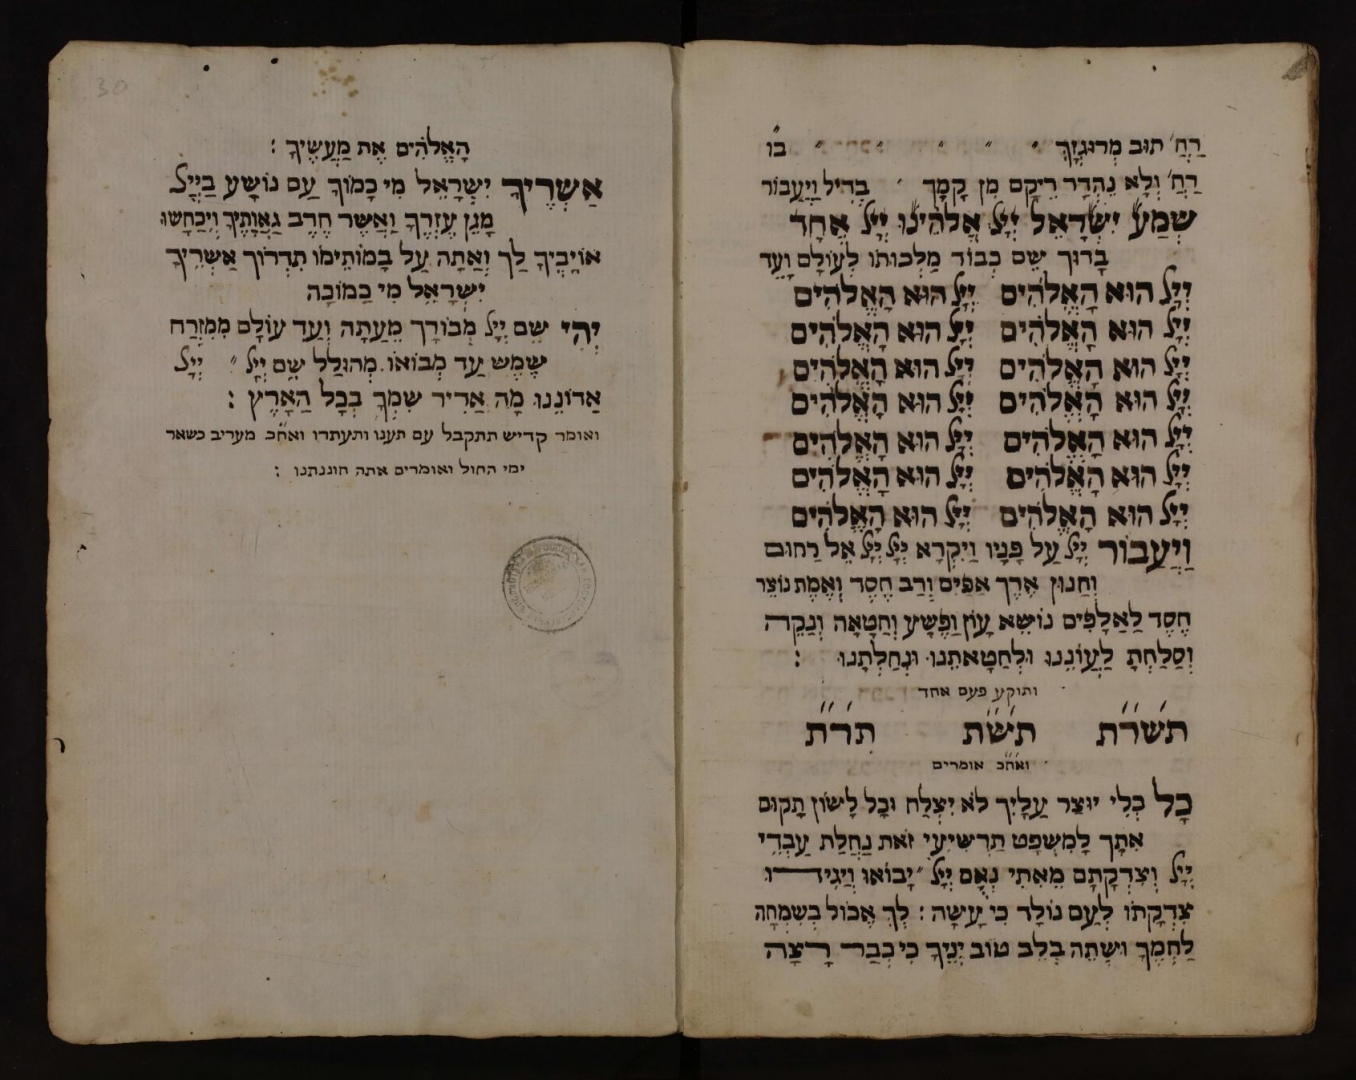 רַחֲ' תּוּב מְרוּגְזָךְ " " " " " בו
רַחֲ' וְלָא נֶהְדַּר רֵיקָם מִן קָמָךְ " בדיל וַיַּעֲבוֹר
שְׁמַע יִשְׂרָאֵל יְיָ אֱלֹהֵינוּ יְיָ אֶחָד
בָּרוּךְ שֵׁם כְּבוֹד מַלְכוּתוֹ לְעוֹלָם וָעֶד
יְיָ הוּא הָאֱלֹהִים יְיָ הוּא הָאֱלֹהִים
יְיָ הוּא הָאֱלֹהִים יְיָ הוּא הָאֱלֹהִים
יְיָ הוּא הָאֱלֹהִים יְיָ הוּא הָאֱלֹהִים
יְיָ הוּא הָאֱלֹהִים יְיָ הוּא הָאֱלֹהִים
יְיָ הוּא הָאֱלֹהִים יְיָ הוּא הָאֱלֹהִים
יְיָ הוּא הָאֱלֹהִים יְיָ הוּא הָאֱלֹהִים
יְיָ הוּא הָאֱלֹהִים יְיָ הוּא הָאֱלֹהִים
וַיַּעֲבוֹר יְיָ עַל פָּנָיו וַיִּקְרָא יְיָ יְיָ אֵל רַחוּם
וְחַנוּן אֶרֶךְ אַפַּיִם וְרַב חֶסֶד וְאֱמֶת נוֹצֵר
חֶסֶד לַאֲלָפִים נוֹשֵׂא עָוֹן וָפֶשַׁע וְחַטָּאָה וְנַקֵּה
וְסָלַחְתָּ לַעֲוֹנֵינוּ וּלְחַטָּאתֵנוּ וּנְחַלְתָּנוּ :
ותוקע פעם אחד
תשר״ת תש״ת תר״ת
ואח״כ אומרים
כָּל כְּלִי יוּצַר עָלַיִךְ לֹא יִצְלָח וְכָל לָשׁוֹן תָּקוּם
אִתָּךְ לָמִשְׁפָּט תַרְשִׁיעִי זֹאת נַחֲלַת עַבְדֵי
יְיָ וְצִדְקָתָם מֵאִתִּי נְאֻם יְיָ " יָבוֹאוּ וְיַגִּידוּ
צִדְקָתוֹ לְעַם נוֹלָד כִּי עָשָׂה : לֵךְ אֱכוֹל בְּשִׂמְחָה
לַחְמֶךָ וּשְׁתֵה בְלֵב טוֹב יֵנֶיךָ כִּי כְבַר רָצָה
30
הָאֱלֹהִים אֶת מַעֲשֶׂיךָ :
אַשְׁרֶיךָ יִשְׂרָאֵל מִי כָמוֹךָ עַם נוֹשַׁע בַּיְיָ
מָגֵן עֶזְרֶךָ וַאֲשֶׁר חֶרֶב גַּאֲוָתֶיךָ וְיִכָּחֲשׁוּ
אוֹיְבֶיךָ לָךְ וְאַתָּה עַל בָּמוֹתֵימוֹ תִדְרוֹךְ אַשְׁרֶיךָ
יִשְׂרָאֵל מִי כָמוֹכָה
יְהִי שֵׁם יְיָ מְבוֹרָךְ מֵעַתָּה וְעַד עוֹלָם מִמִּזְרַח
שֶׁמֶשׁ עַד מְבוֹאוֹ מְהוּלָל שֵׁם יְיָ " יְיָ
אֲדוֹנֵנוּ מָה אַדִּיר שִׁמְךָ בְּכָל הָאָרֶץ :
ואומר קדיש תתקבל עם תענו ותעתדו ואח״כ מעריב כשאר
ימי החול ואומרים אתה חוננתנו :